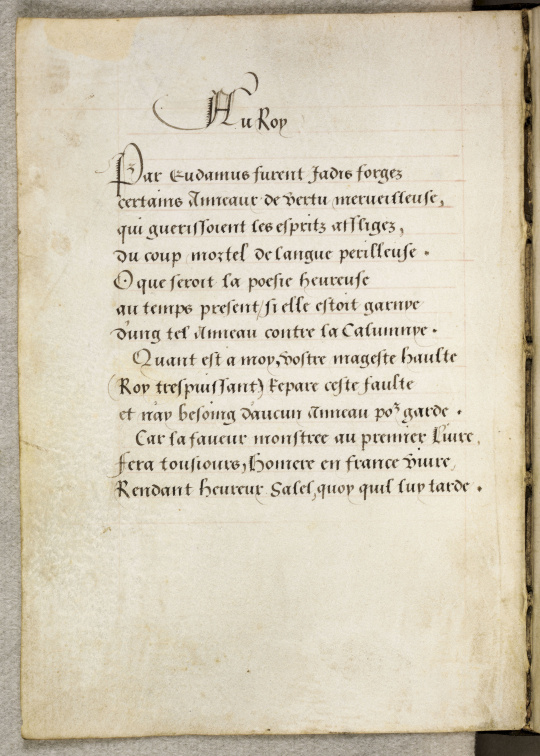 Au Roy
Par Eudamus furent Jadis forgez
certains Anneaux de vertu merveilleuse,
qui guerissoient les espritz affligez,
du coup mortel de langue perilleuse .
O que seroit la poesie heureuse
au temps present / si elle estoit garnye
d'ung tel Anneau contre la Calumnye .
Quant est a moy, vostre mageste haulte
(Roy trespuissant) Repare ceste faulte
et n'ay besoing d'aucun Anneau poz garde .
Car la faveur monstree au premier Livre,
fera tousiours, Homere en france vivre,
Rendant heureux Salel, quoy quil luy tarde .